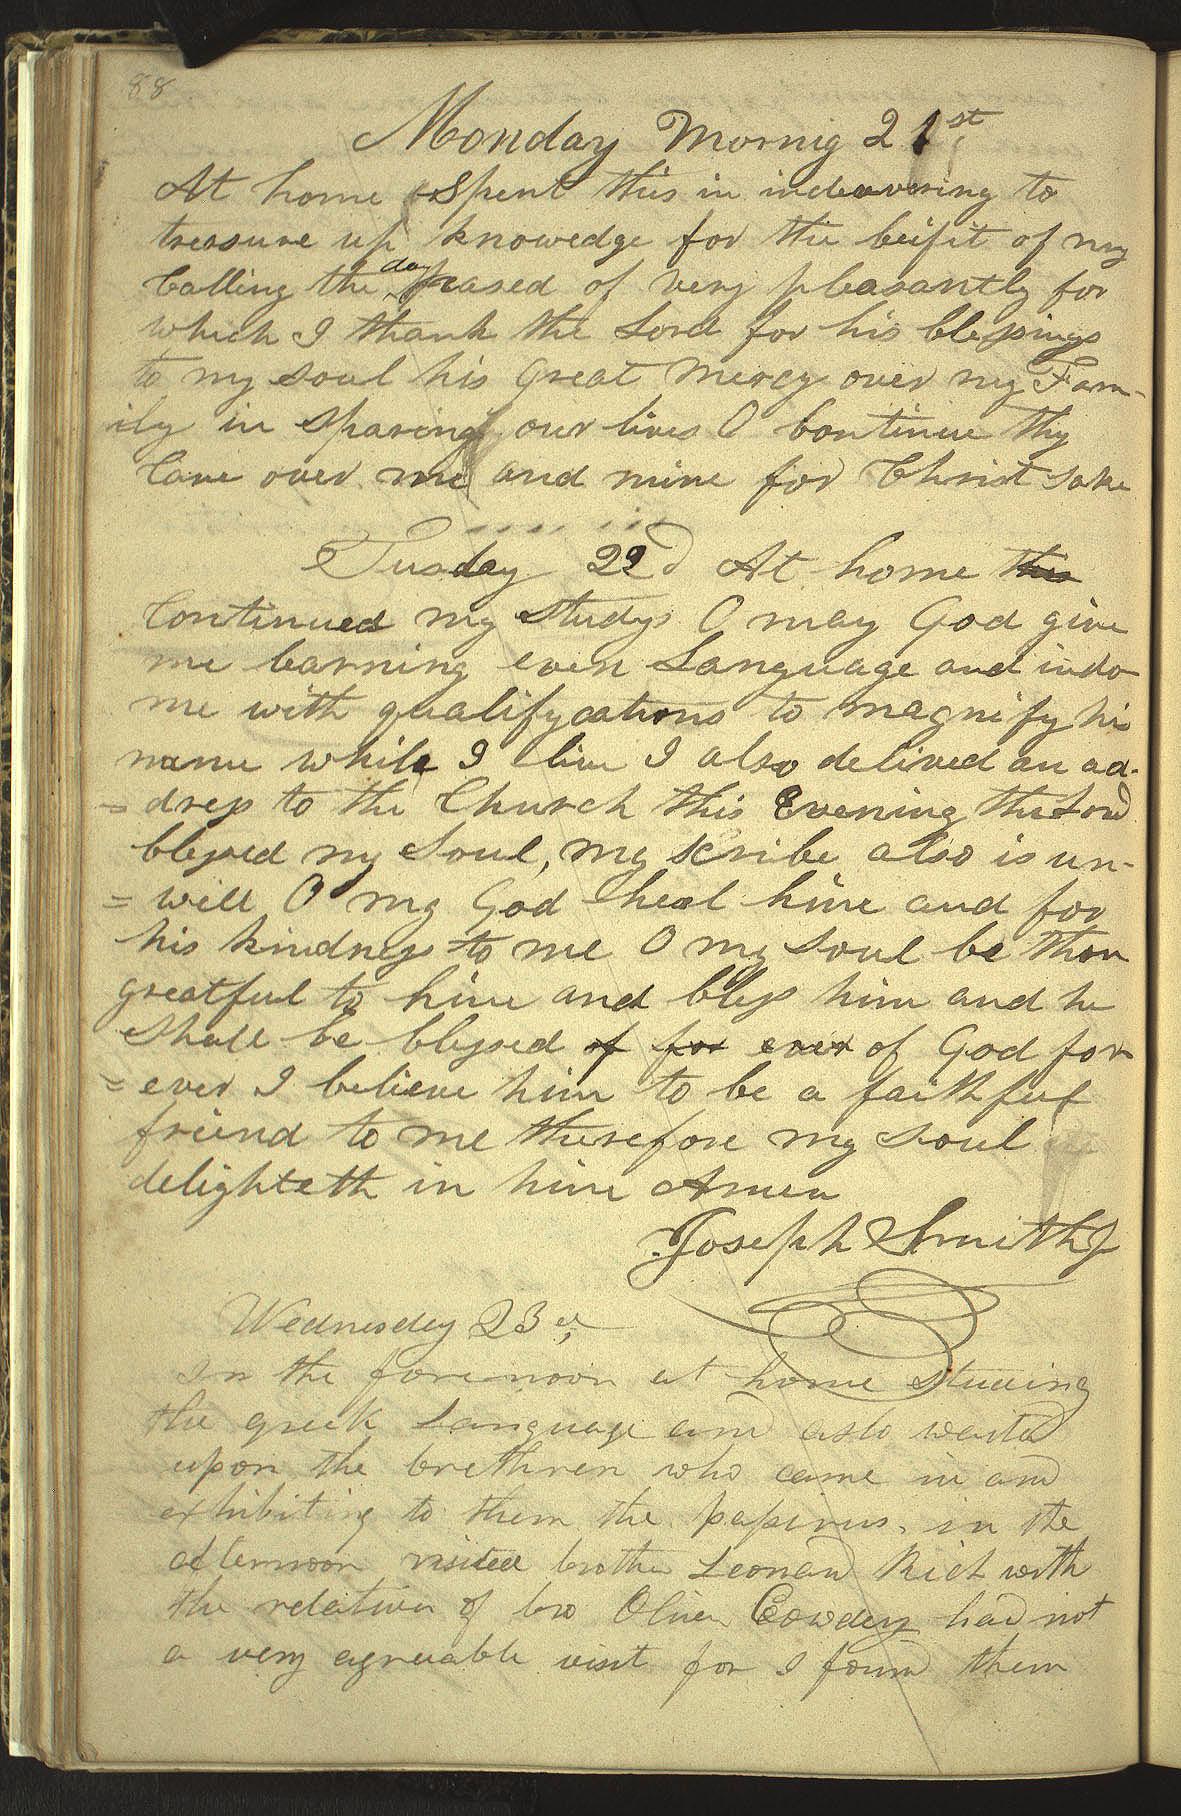 88
Monday Mornig 21st
At home Spent this in indeavering to
tressure up knowedge for the beifit of my
Calling the day pased of very pleasantly for
which I thank the Lord for his blessings
to my soul his great mercy over my Fam-
ily in sparing our lives O Continue thy
Care over me and mine for Christ sake
Tusday 22d At home this
Continued my studys O may God give
me learning even Language and indo
me with qualifycations to magnify his
name while I live I also delived an ad-
=dress to the Church this Evening the Lord
blessed my Soul, my scribe also is un-
=well O my God heal him and for
his kindness to me O my soul be thou
greatful to him and bless him and he
shall be blessed of for ever of God for
=ever I believe him to be a faithful
friend to me therefore my soul
delighteth in him Amen
Joseph Smith Jr
Wednesday 23d,
In the forenoon at home studing
the greek Language and aslo waited
upon the brethren who came in and
exhibiting to them the papirus, in the
afternoon visited brother Leonard Rich with
the relatives of bro Oliver Cowdery had not
a very agreuable visit for I found them